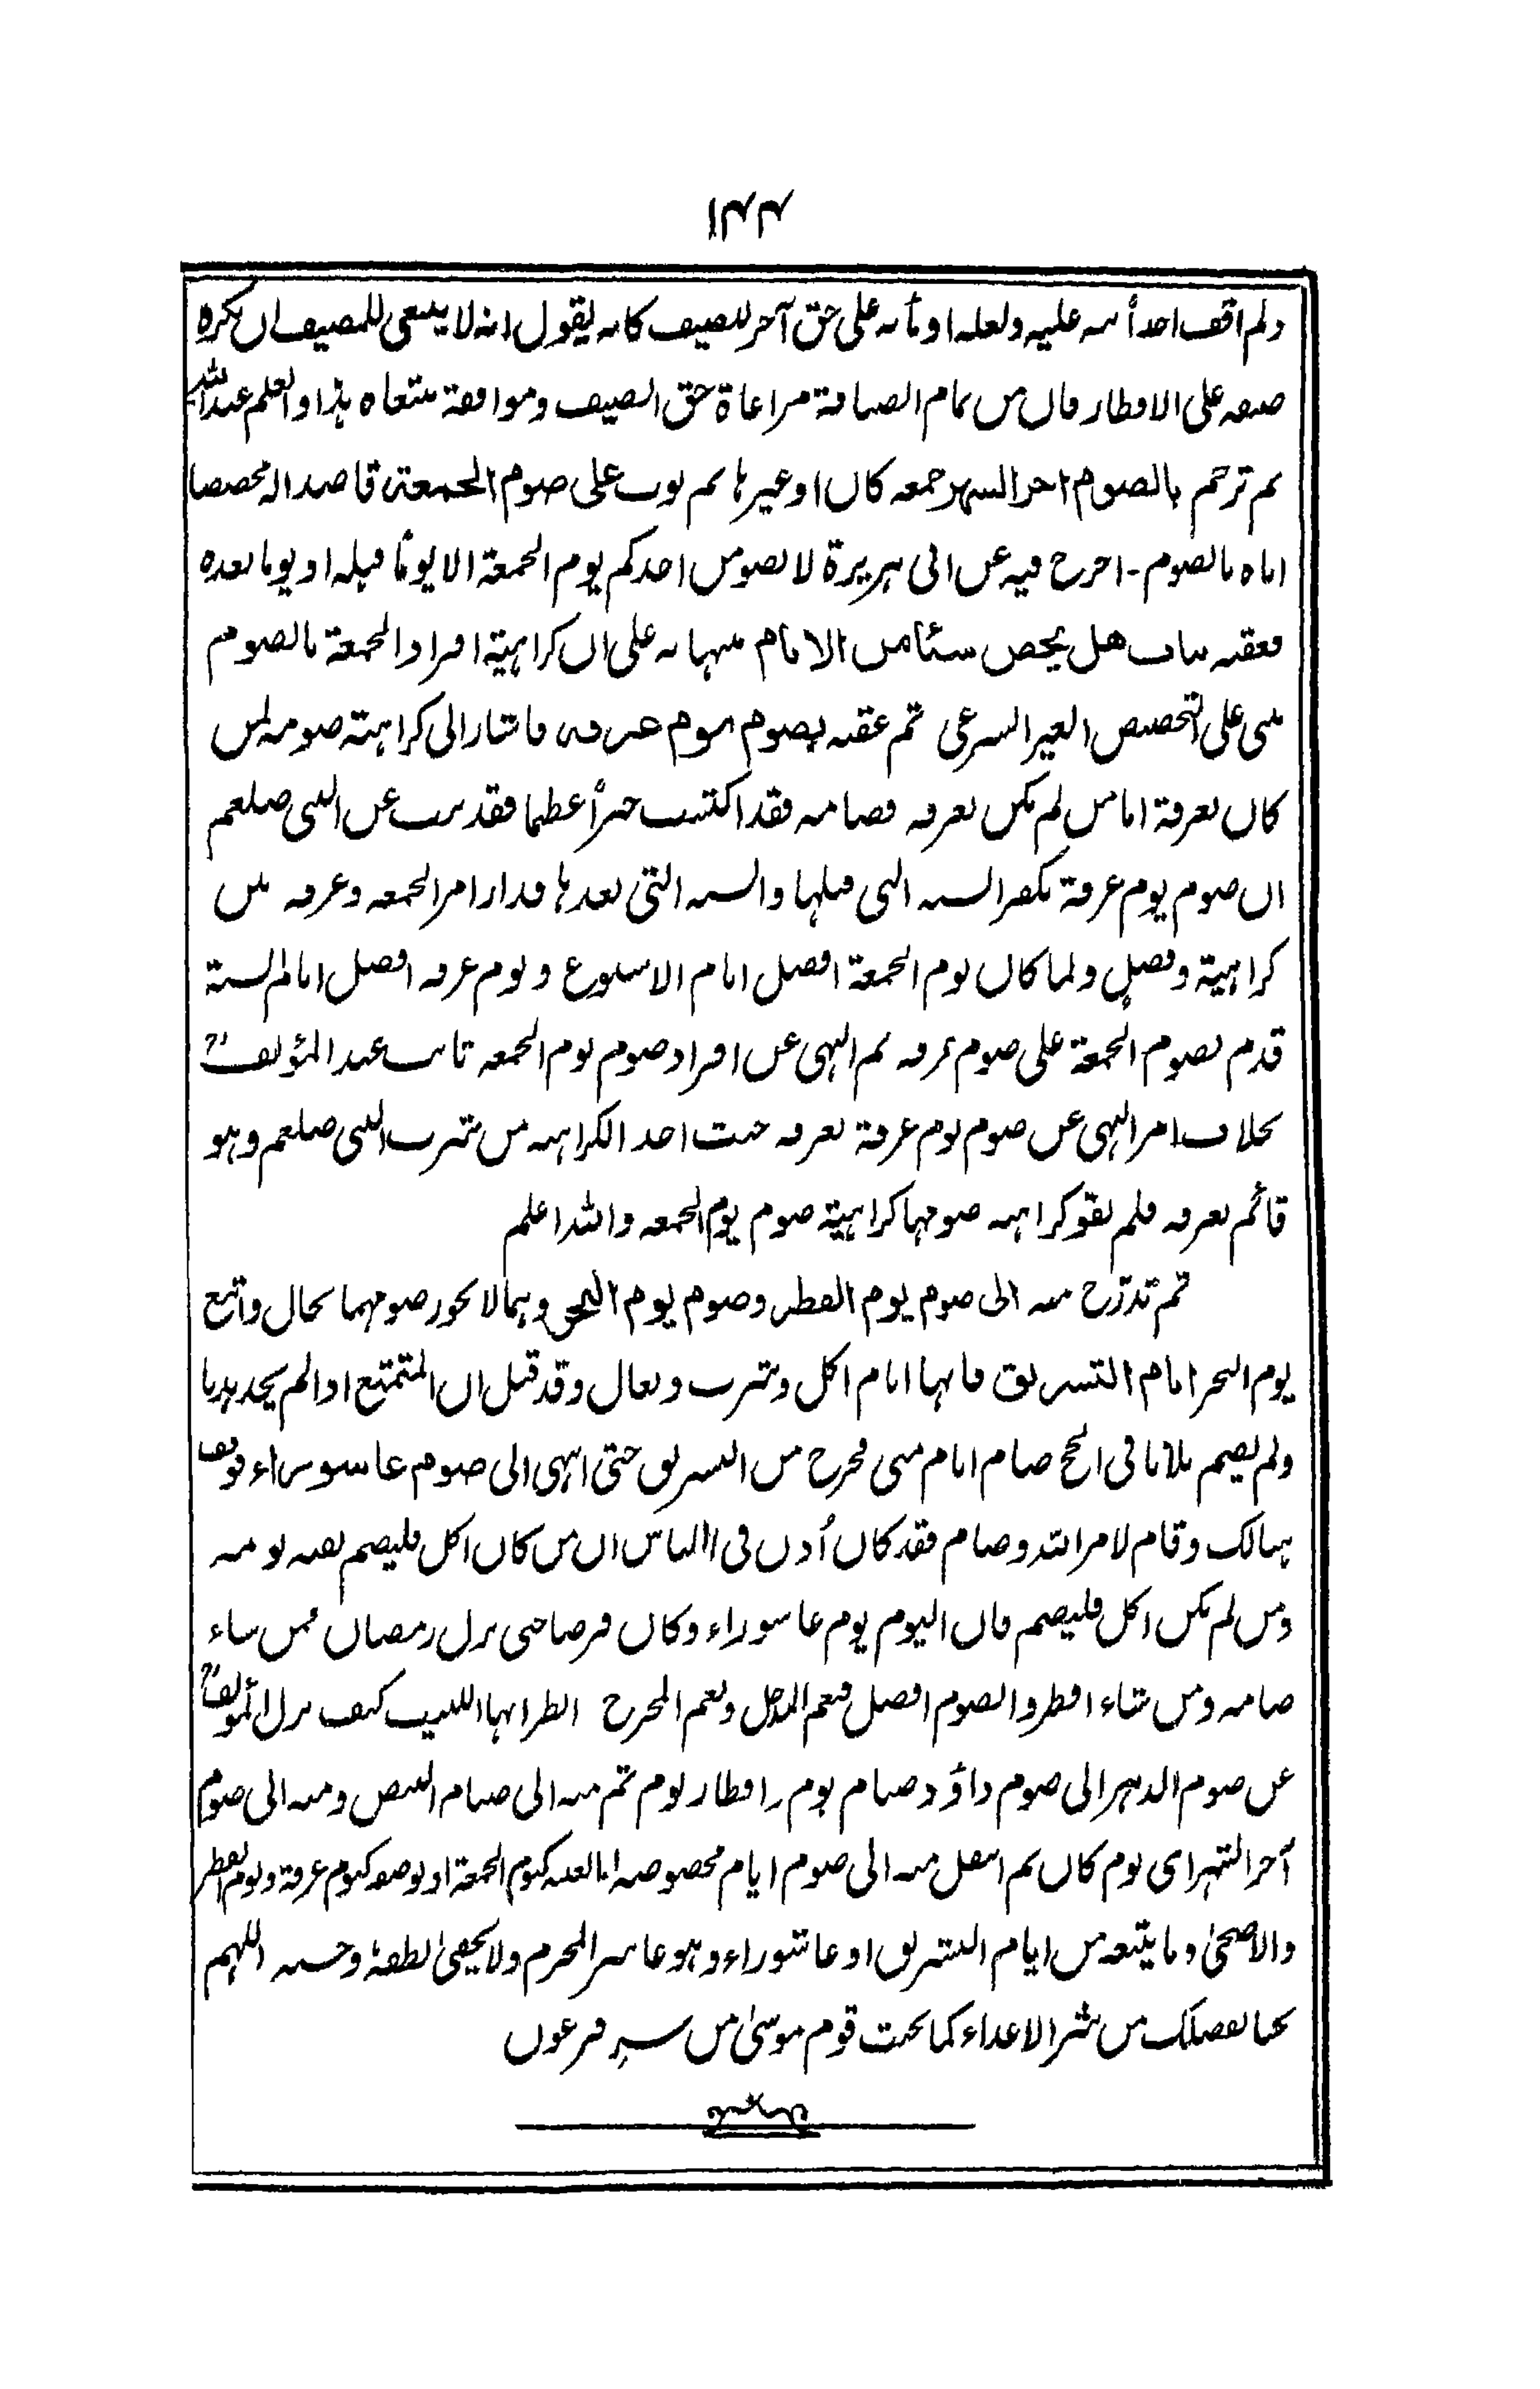 ۱۴۴
ولم اقف احداً نبه عليه ولعله اومأ به على حق آخر للضيف كانه يقول انه لا ينبغي للمضيف ان يكره
ضيفه على الافطار فان من تمام الضيافة مراعاة حق الضيف وموافقة متبعاه هذا والعلم عند الله
ثم ترجم بالصوم اخر الشهر جمعه كان او غيرها ثم بوب على صوم الجمعة قاصدا له مخصصا
اياه بالصوم - اخرج فيه عن ابى هريرة لا يصومن احدكم يوم الجمعة الا يوماً قبله او يوما بعده
فعقبه بباب هل يخص شيئا من الايام منبها به على ان كراهية افراد الجمعة بالصوم
مبنى على التخصيص الغير الشرعى ثم عقبه بصوم يوم عرفه فاشار الى كراهته صومه لمن
كان بعرفة اما من لم يكن بعرفه فصامه فقد اكتسب خيراً عظيما فقد ثبت عن النبى صلعم
ان صوم يوم عرفة يكفر السنه التى قبلها والسنه التى بعدها فدار امر الجمعه وعرفه بين
كراهية وفضل ولما كان يوم الجمعة افضل ايام الاسبوع ويوم عرفه افضل ايام السنة
قدم بصوم الجمعة على صوم عرفه ثم النهى عن افراد صوم يوم الجمعه ثابت عند المؤلف رح
بخلاف امر النهى عن صوم يوم عرفة بعرفه حيث اخذ الكراهيه من شرب النبى صلعم وهو
قائم بعرفه فلم يقو كراهيه صومها كراهية صوم يوم الجمعه والله اعلم
ثم تدرّج منه الى صوم يوم الفطر وصوم يوم النحر وهما لا يجوز صومهما بحال واتبع
يوم النحر ايام التشريق فانها ايام اكل وشرب وبعال وقد قيل ان المتمتع اذا لم يجد هديا
ولم يصم ثلاثا فى الحج صام ايام منى فخرج من التشريق حتى انتهى الى صوم عاشوراء فوقف
هنالك وقام لامر الله وصام فقد كان أذن فى الناس ان من كان اكل فليصم بقيه يومه
ومن لم يكن اكل فليصم فان اليوم يوم عاشوراء وكان فرضا حتى نزل رمضان فمن شاء
صامه ومن شاء افطر والصوم افضل فنعم المدخل ونعم المخرج انظر ايها اللبيب كيف نزل المؤلف رح
عن صوم الدهر الى صوم داؤد صيام يوم وافطار يوم ثم منه الى صيام البيض ومنه الى صوم
آخر الشهر اى يوم كان ثم انتقل منه الى صوم ايام مخصوصه اما بعينه كيوم الجمعة او بوصفه كيوم عرفة ويوم الفطر
والاضحىٰ وما يتبعه من ايام التشريق او عاشوراء وهو عاشر المحرم ولا يخفىٰ لطفهٗ وحسنه اللهم
نجنا بفضلك من شر الاعداء كما نجيت قوم موسىٰ من شر فرعون